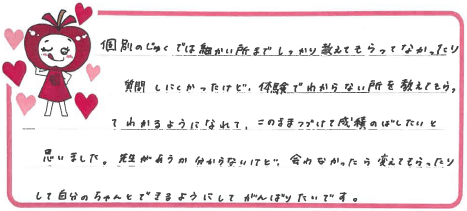 個別のじゅくでは細かい所までしっかり教えてもらってなかったり
質問しにくかったけど、体験でわからない所を教えてもらっ
てわかるようになれて、このままつづけて成績のばしたいと
思いました。先生があうか分からないけど、会わなかったら変えてもらったり
して自分のちゃんとできるようにしてがんばりたいです。